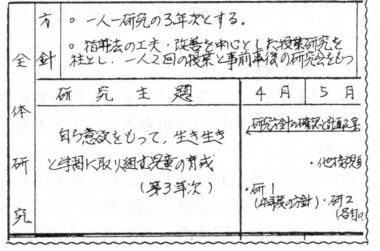 方針
。一人一研究の3年次とする。
。指導法の工夫・改善を中心とした授業研究を
柱とし、一人2回の授業と事前事後の研究会をもつ
全体研究
研究主題
4月
5月
自ら意欲をもって、生き生き
と学習に取り組む児童の育成
(第3年次)
研究方針の確認と計画立案
・研1
(本年度の方針)
・研2